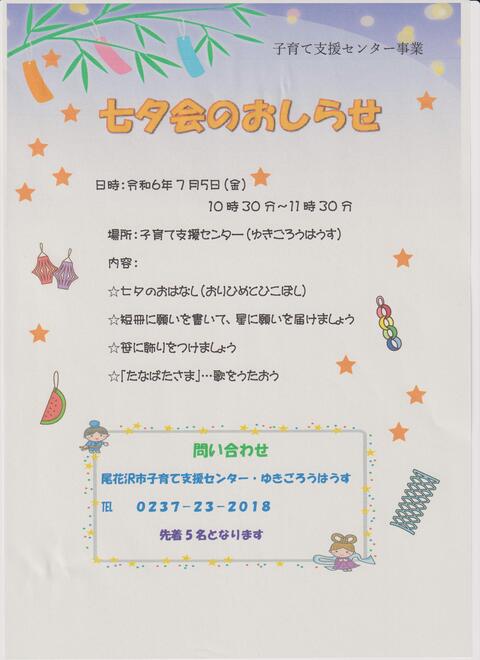 子育て支援センター事業
七夕会のおしらせ
日時：令和6年7月5日（金）
10時30分～11時30分
場所：子育て支援センター（ゆきごろうはうす）
内容：
☆七夕のおはなし（おりひめとひこぼし）
☆短冊に願いを書いて、星に願いを届けましょう
☆笹に飾りをつけましょう
☆「たなばたさま」…歌をうたおう
問い合わせ
尾花沢市子育て支援センター・ゆきごろうはうす
TEL 0237－23－2018
先着5名となります